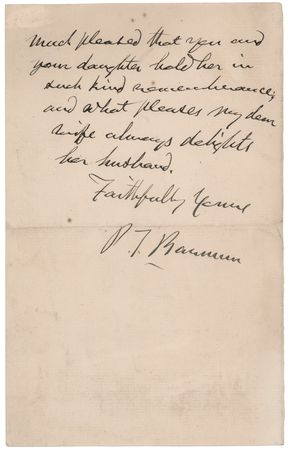 much pleased that you and
your daughter hold her in
such kind remembrance;
and what pleases my dear
wife always delights
her husband.
Faithfully Yours
P. T. Barnum